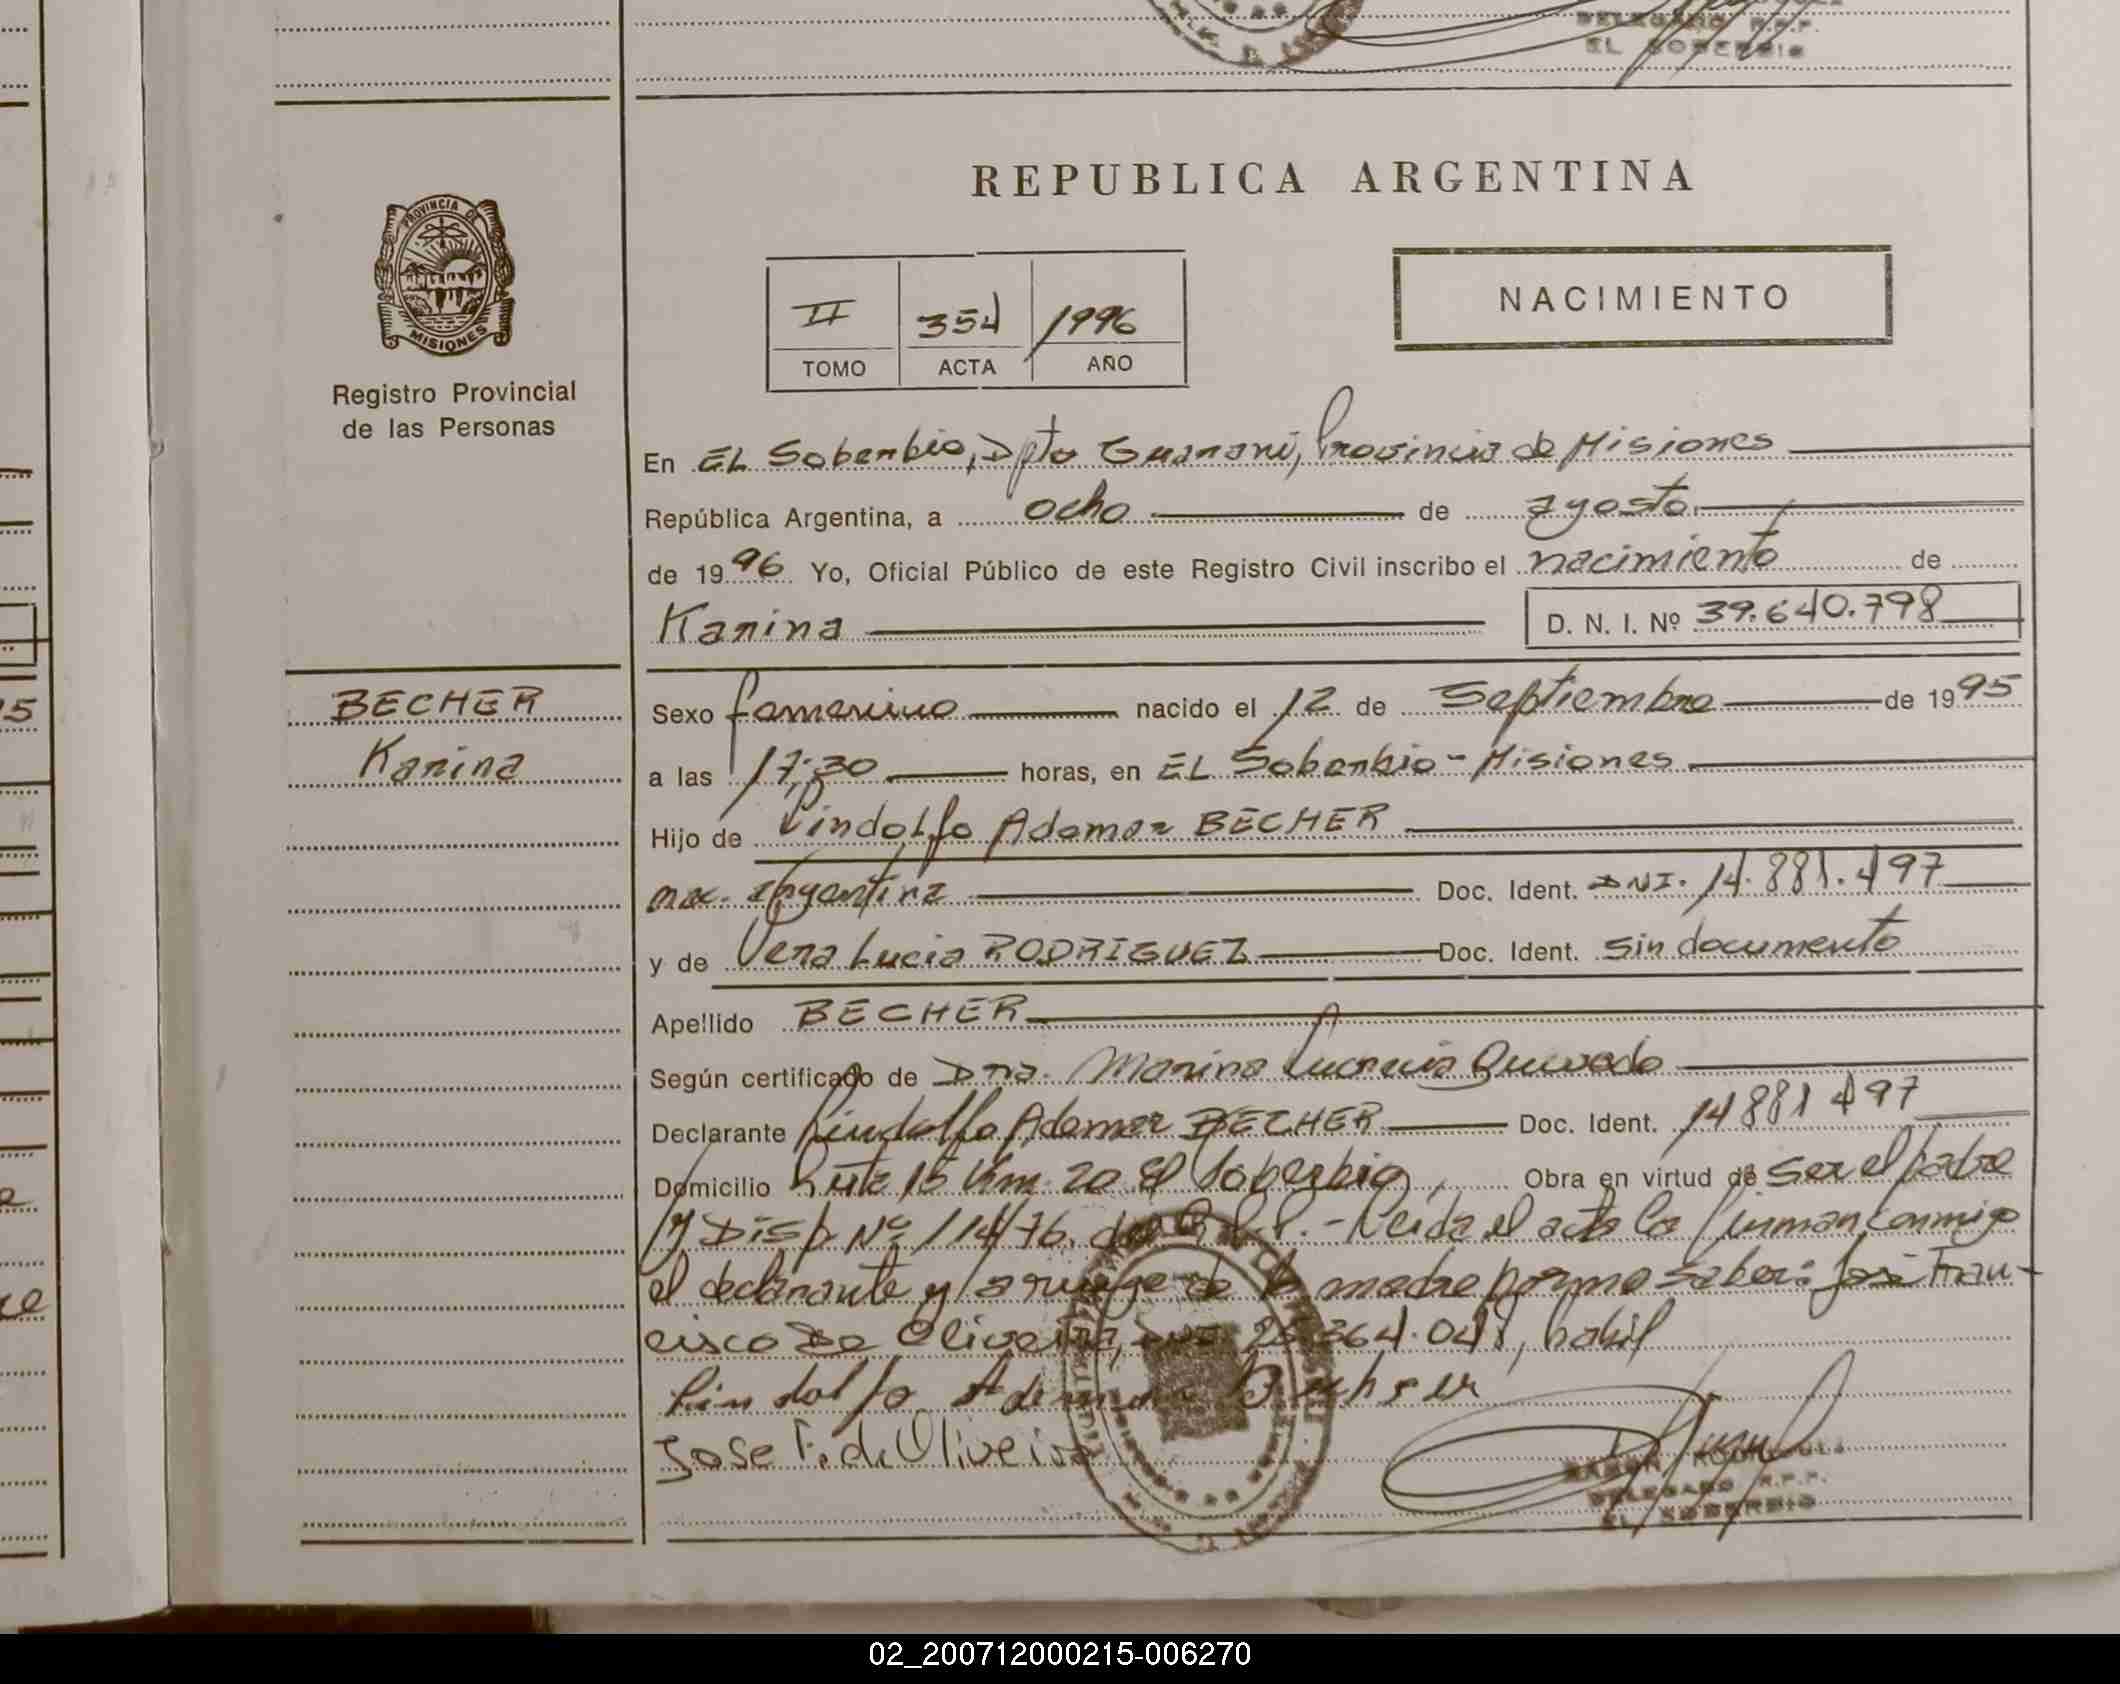 DELEGADO R.P.P.
EL SOBERBIO
PROVINCIA DE
MISIONES
Registro Provincial
de las Personas
REPUBLICA ARGENTINA
II 354 1996
TOMO ACTA AÑO
NACIMIENTO
En EL Soberbio, Dpto Guarani, Provincia de Misiones
República Argentina, a ocho de agosto
de 1996 Yo, Oficial Público de este Registro Civil inscribo el nacimiento de
Karina D. N. I. Nº 39.640.798
BECHER
Karina
Sexo femenino nacido el 12 de Septiembre de 1995
a las 17:30 horas, en EL Soberbio - Misiones
Hijo de Lindolfo Ademar BECHER
nac. argentina Doc. Ident. DNI. 14.881.497
y de Vera Lucia RODRIGUEZ Doc. Ident. sin documento
Apellido BECHER
Según certificado de Dra. Marina Lucrecia Quevedo
Declarante Lindolfo Ademar BECHER Doc. Ident. 14 881 497
Domicilio Ruta 15 Km 20 El Soberbio, Obra en virtud de ser el padre
y Disp. Nº 114/76. del R.P.P. - Leida el acta la firman conmigo
el declarante y a ruego de la madre por no saber: José Fran-
cisco De Oliveira, 364.041, habil
Lindolfo Ademar Becher
Jose F. de Oliveira
DELEGADO R.P.P.
EL SOBERBIO
02_200712000215-006270